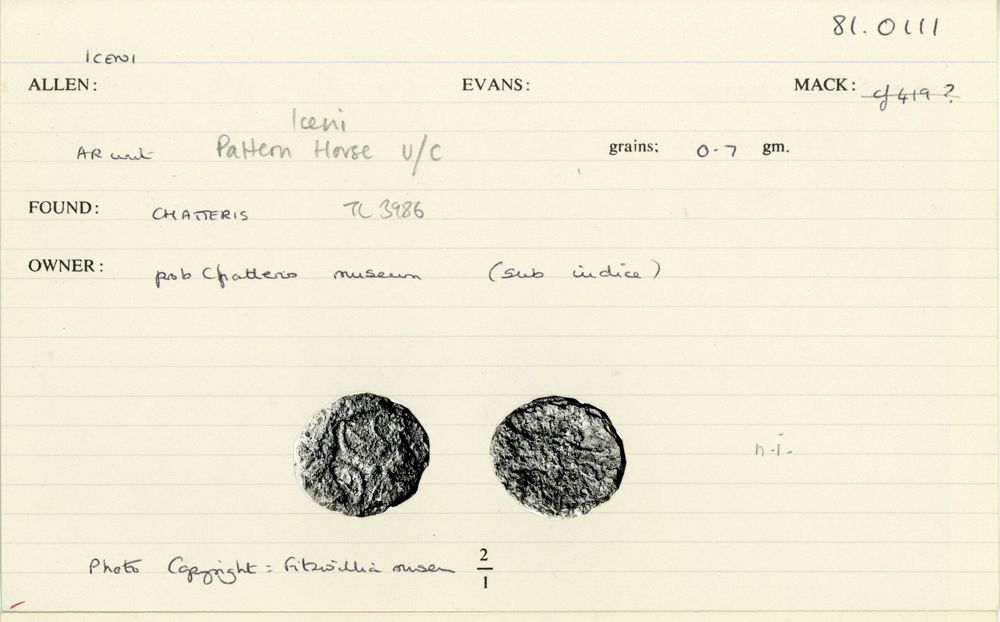 81.0111
ICENI
ALLEN: EVANS: MACK: cf 419 ?
Iceni
AR unit Pattern Horse U/C grains: 0.7 gm.
FOUND: CHATTERIS TL 3986
OWNER: prob Chatteris museum (sub indice)
n.i.
Photo Copyright = Fitzwillia museu 2/1